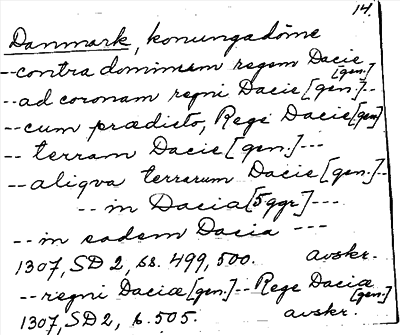 14.
Danmark, konungadöme
--contra dominum regem Dacie [gen.]
--ad coronam regni Dacie [gen.]--
--cum prædicto, Rege Dacie [gen]
-- terram Dacie [gen.]---
--aliqva terrarum Dacie [gen.]--
--in Dacia [5ggr]---
--in eadem Dacia ---
1307, SD 2, ss. 499, 500. avskr.
--regni Daciæ [gen.]--Rege Daciæ [gen.]
1307, SD 2, s. 505. avskr.